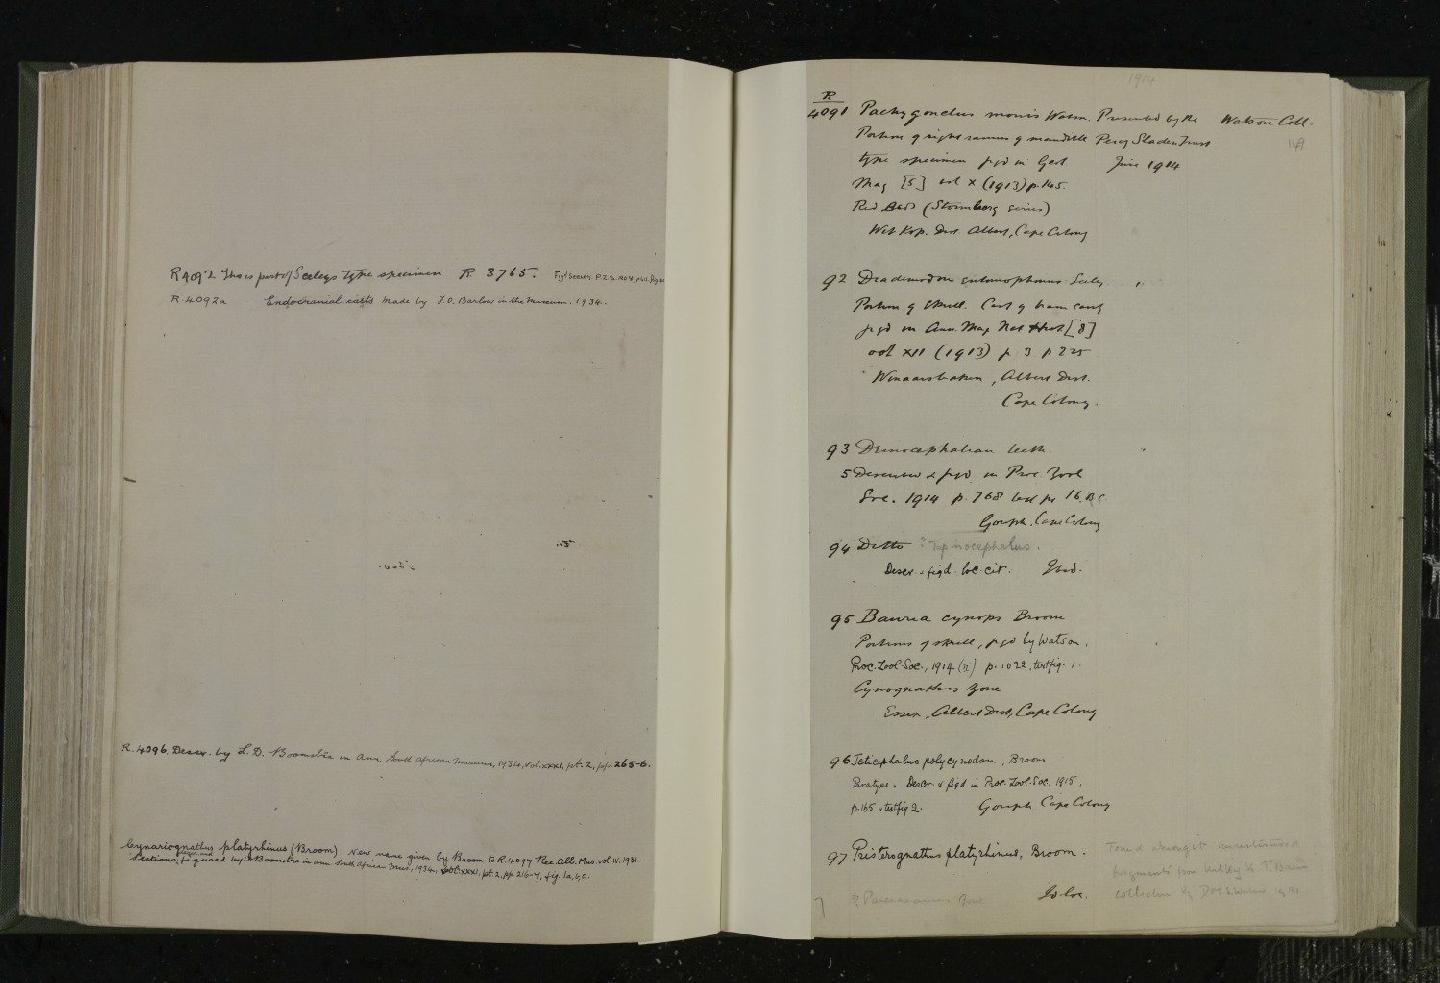 R4092 This is part of Seeleys type specimen R. 3765. Figd Seeley. P.Z.S.
R.4092a Endocranial casts made by F.O. Barlow in the Museum. 1934.
R.4096. Descr. by L.D. Boonstra in Ann. South African Museum, 1934, vol. xxxi, pt. 2, pp. 265-6.
Cynariognathus platyrhinus (Broom) New name given by Broom to R.4097 Rec. Alb. Mus. vol IV. 1931.
Sections figured by Boonstra in Ann. South African Mus., 1934, vol. xxxi, pt. 2, pp. 216-7, fig. 1a, b, c.
1914
R.
4091 Pachygonelus monis Watson. Presented by the Watson Coll.
Portion of right ramus of mandible Percy Sladen Trust
type specimen figd in Geol June 1914
Mag [5] vol X (1913) p. 145.
Red Beds (Stormberg series)
Wit Kop. Dist Albert, Cape Colony
92 Diademodon entomophonus Seeley "
Portion of skull. Cast of brain cavity
figd in Ann. Mag Nat Hist [8]
vol XII (1913) p. 225
Winaarsbaken, Albert Dist.
Cape Colony.
93 Deinocephalian teeth
5 Described & figd in Proc. Zool
Soc. 1914 p. 768 text fig 16. B C
Gouph. Cape Colony
94 Ditto ? Tapinocephalus.
Descr. & figd. loc. cit. Ibid.
95 Bauria cynops Broom
Portions of skull, figd by Watson.
Proc. Zool. Soc., 1914 (n) p. 1022, textfig. 1.
Cynognathus Zone
Essex, Albert Dist, Cape Colony
96 Ictidocephalus polycynodon, Broom
Paratype. Descr. & figd in Proc. Zool. Soc. 1915,
p. 165. textfig 2. Gouph Cape Colony
97 Pristerognathus platyrhinus, Broom. Found amongst
fragments from T. Bain
Id. loc. collection by D.M.S. Watson
? Pareiasaurus Zone